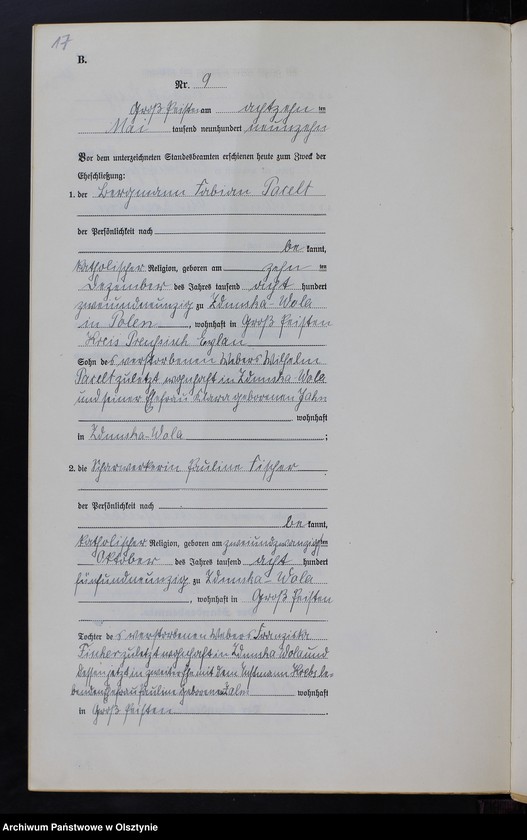 17
B.
Nr. 9
Groß Peisten am achtzehn ten
Mai tausend neunhundert neunzehn
Vor dem unterzeichneten Standesbeamten erschienen heute zum Zweck der
Eheschließung:
1. der Bergmann Fabian Parelt
der Persönlichkeit nach
be kannt,
katholischer Religion, geboren am zehn ten
Dezember des Jahres tausend acht hundert
zweiundneunzig zu Zdunska-Wola
in Polen, wohnhaft in Groß Peisten
Kreis Preußisch Eylau
Sohn des verstorbenen Webers Wilhelm
Parelt zuletzt wohnhaft in Zdunska Wola
und seiner Ehefrau Klara geborenen Jahn
wohnhaft
in Zdunska-Wola ;
2. die Scharwerkerin Pauline Fischer
der Persönlichkeit nach
be kannt,
katholischer Religion, geboren am zweiundzwanzigsten
Oktober des Jahres tausend acht hundert
fünfundneunzig zu Zdunska-Wola
, wohnhaft in Groß Peisten
Tochter des verstorbenen Webers
zuletzt wohnhaft in Zdunska Wola und
dessen jetzt in zweiter Ehe mit dem Instmann
Ehefrau Pauline geborenen wohnhaft
in Groß Peisten .
Archiwum Państwowe w Olsztynie